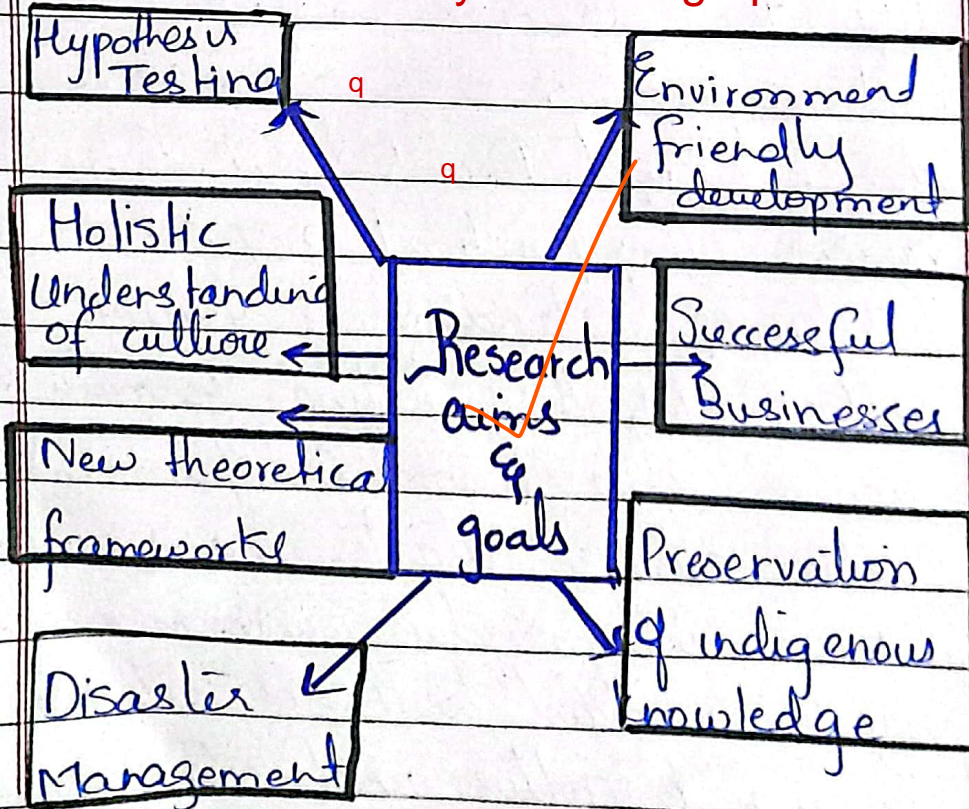 Hypothesis
Testing
q
q
Environmend
friendly
development
Holistic
Understanding
of culture
Research
aims
&
goals
Successful
Businesses
New theoretical
frameworks
Preservation
of indigenous
knowledge
Disaster
Management